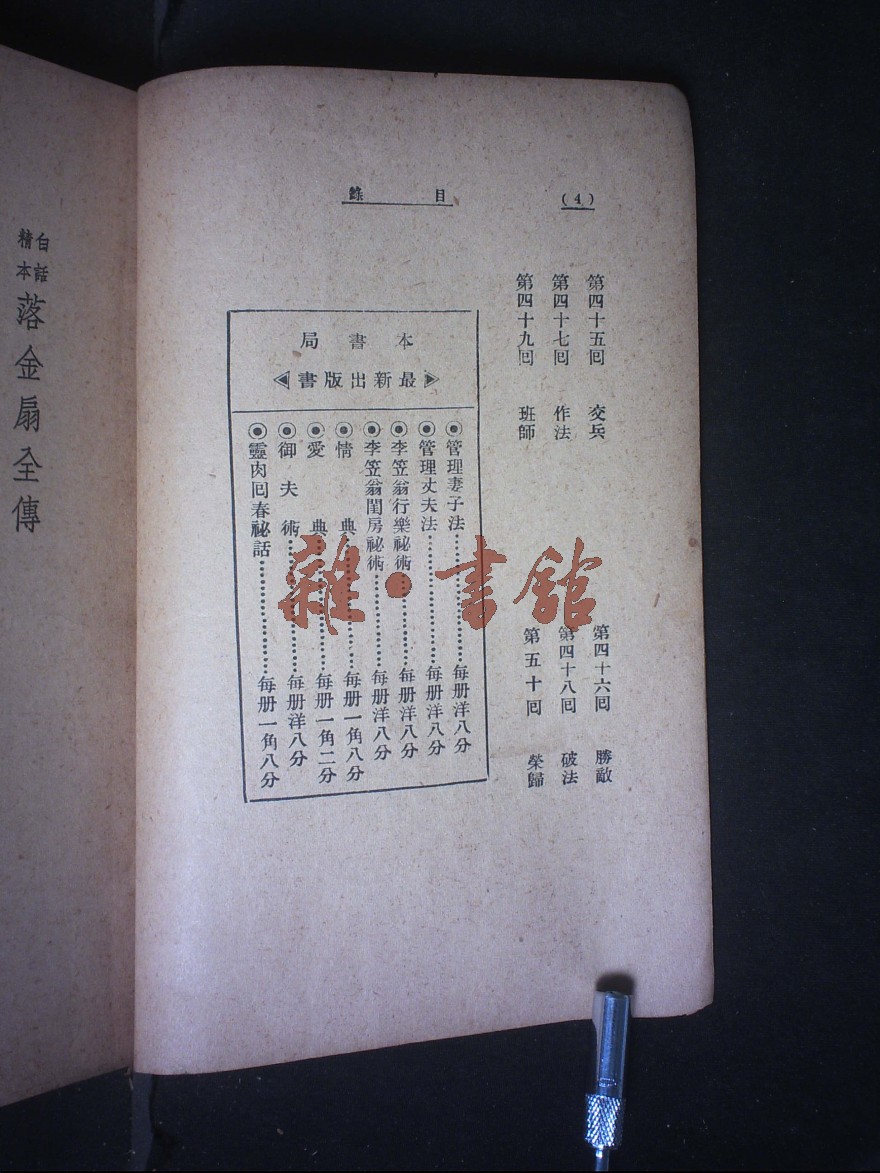 (4)
目錄
第四十五回 交兵
第四十六回 勝敵
第四十七回 作法
第四十八回 破法
第四十九回 班師
第五十回 榮歸
本書局
最新出版書
◉管理妻子法……………每册洋八分
◉管理丈夫法……………每册洋八分
◉李笠翁行樂祕術…………每册洋八分
◉李笠翁閨房祕術…………每册洋八分
◉情典……………每册一角八分
◉愛典……………每册一角二分
◉御夫術……………每册洋八分
◉靈肉回春祕話……………每册一角八分
白話
精本
落金扇全傳
雜·書館